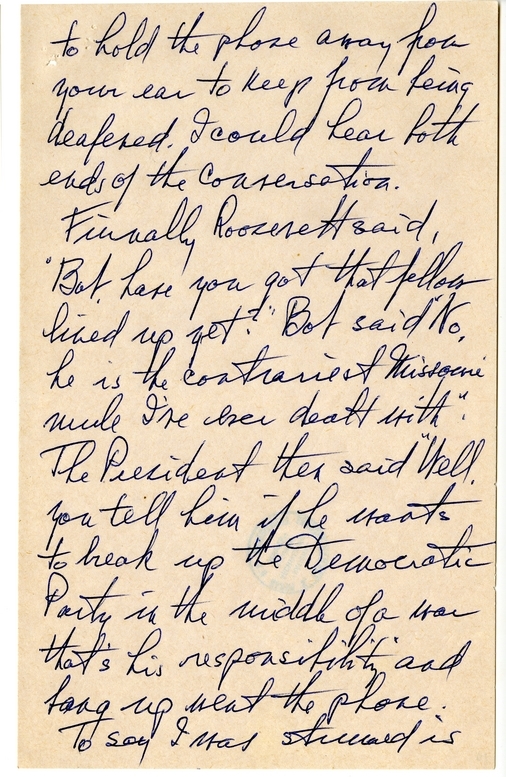 to hold the phone away from
your ear to keep from being
deafened. I could hear both
ends of the conversation.
Finnally Roosevelt said,
"Bob, have you got that fellow
lined up yet?" Bob said "No,
he is the contrariest Missouri
mule I've ever dealt with".
The President then said "Well,
you tell him if he wants
to break up the Democratic
Party in the middle of a war
that's his responsibility" and
bang up went the phone.
To say I was stunned is